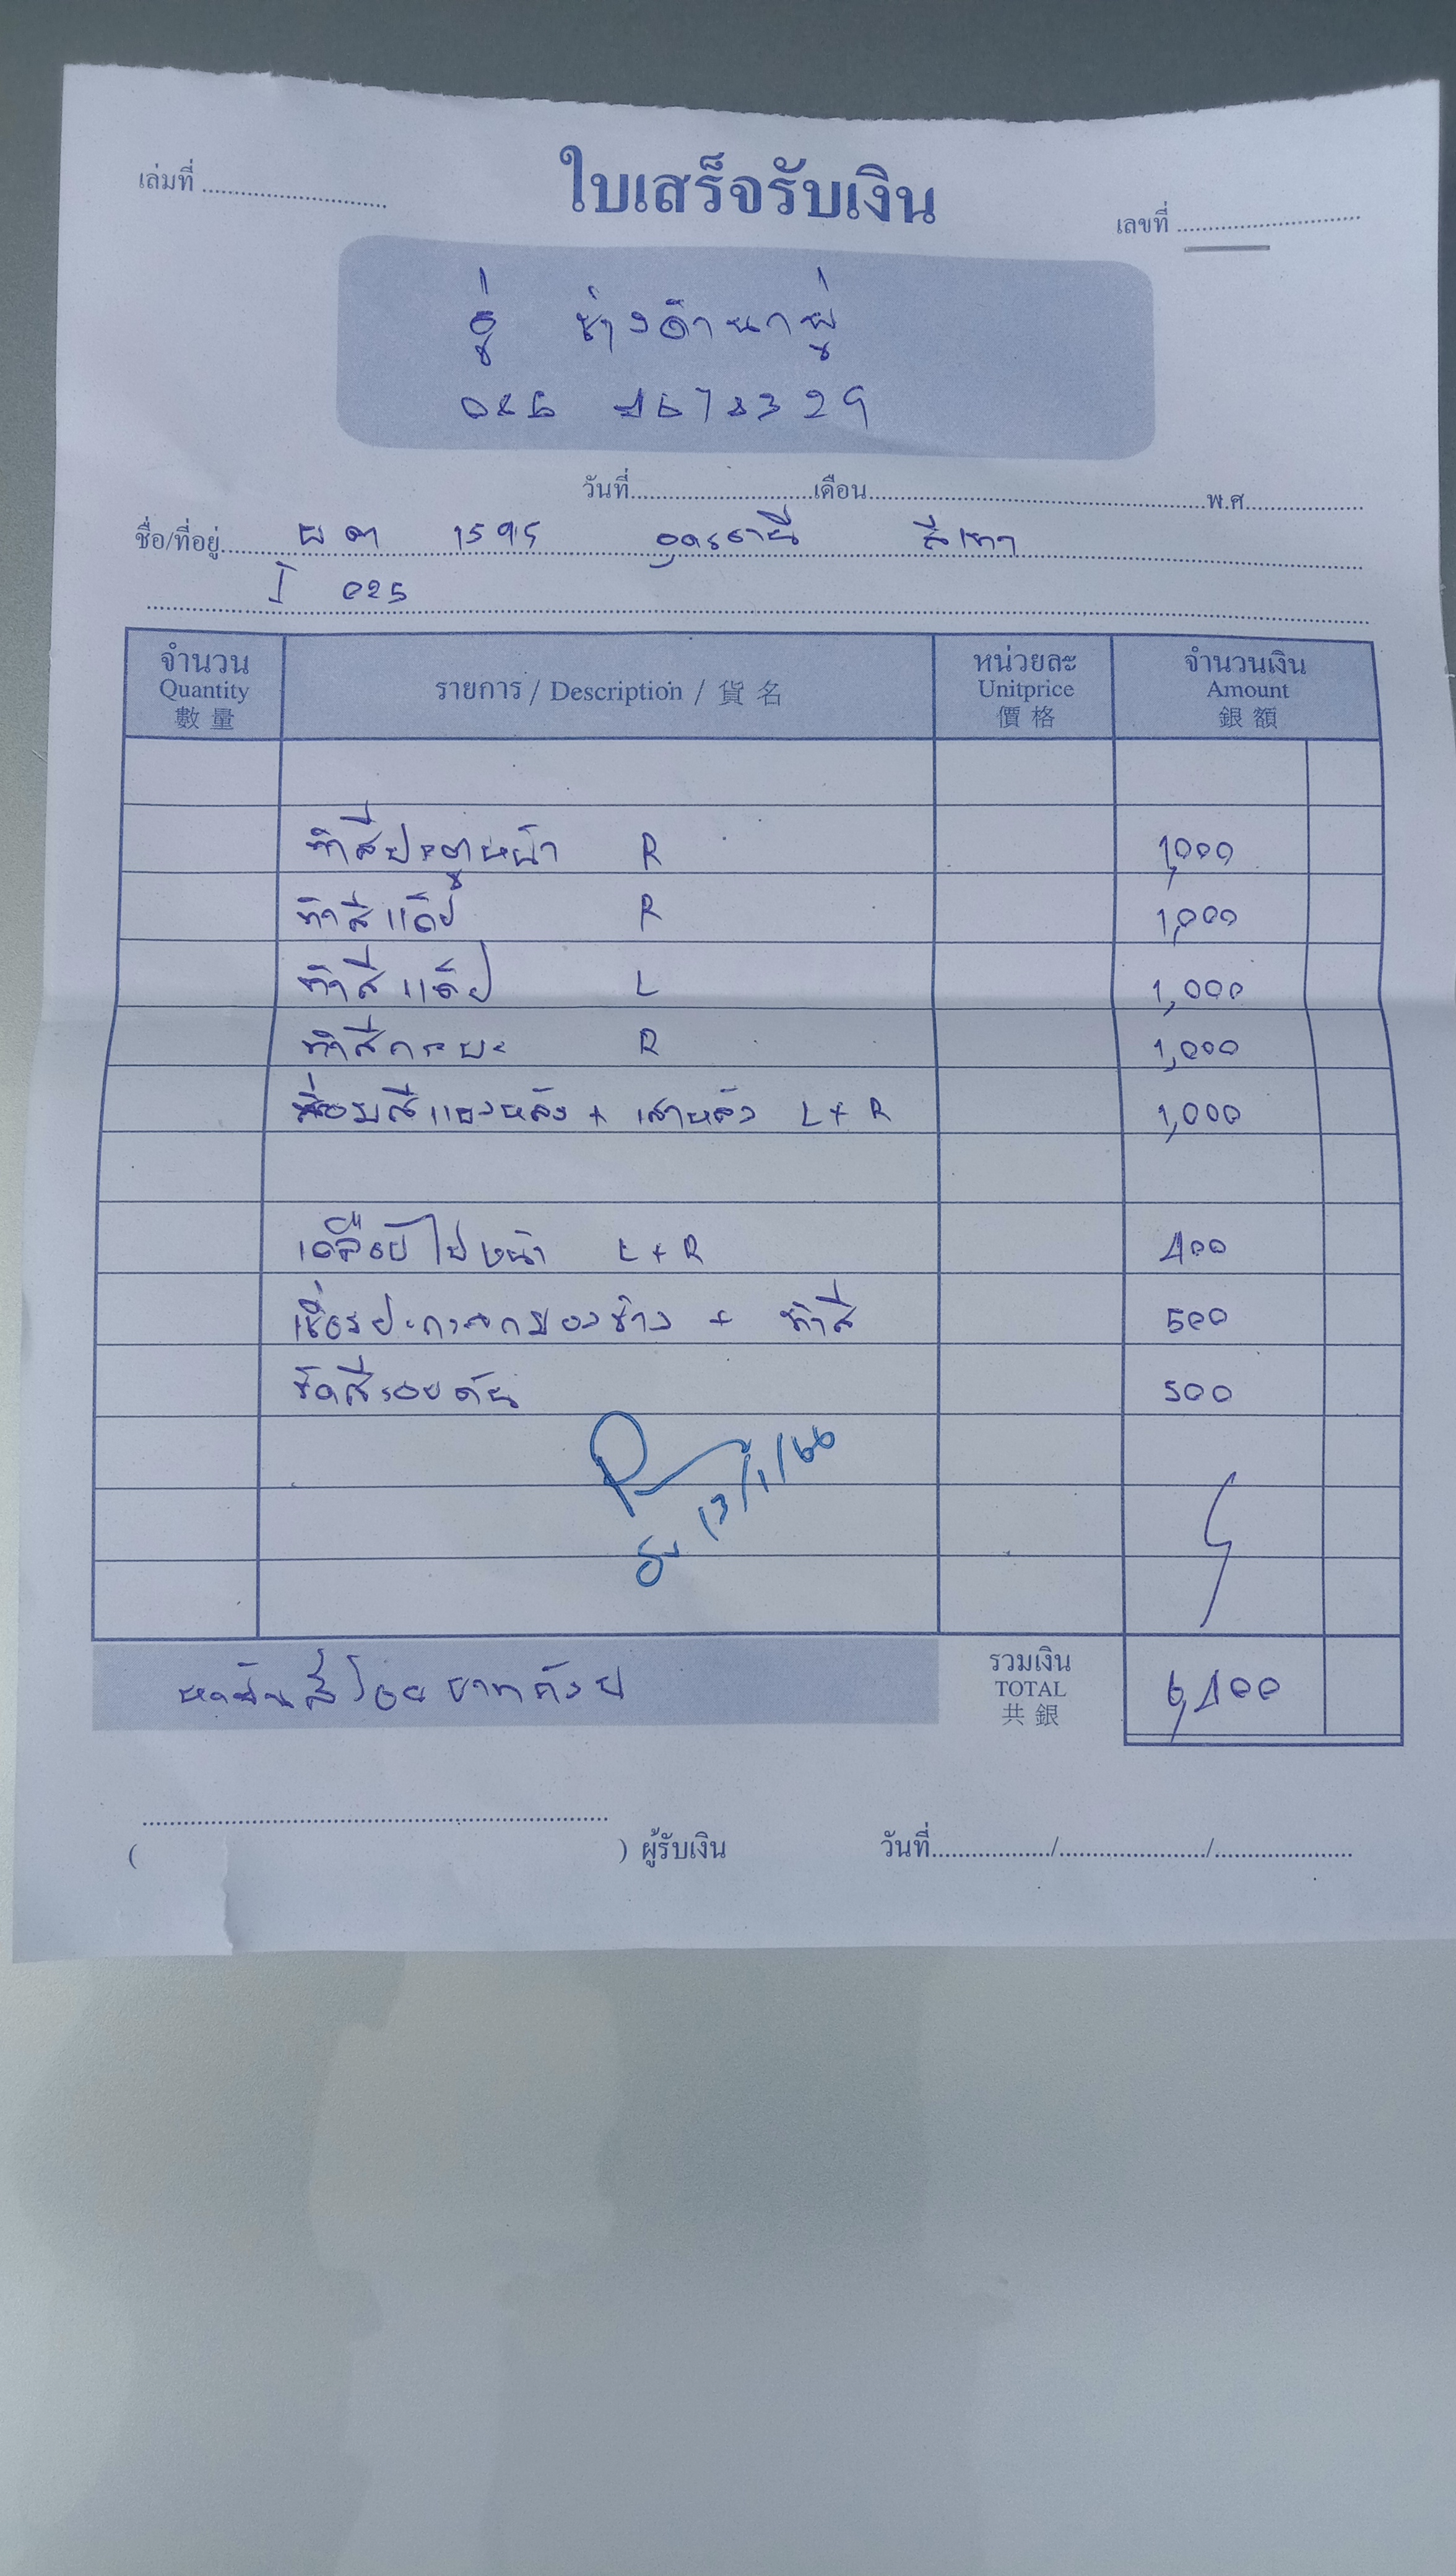 ใบเสร็จรับเงิน
เล่มที่
เลขที่
อู่ ช่างดำนาภู่
วันที่ เดือน พ.ศ.
ชื่อ/ที่อยู่ ผต 1595 อุดรธานี สีเทา
I 025
จำนวน Quantity 數量
รายการ / Description / 貨名
หน่วยละ Unitprice 價格
จำนวนเงิน Amount 銀額
ทำสีประตูหน้า R 1,000
ทำสีแค๊ป R 1,000
ทำสีแค๊ป L 1,000
ทำสีกระบะ R 1,000
ซ่อมสีแผงหลัง + เสาหลัง L + R 1,000
เคลือบไฟหน้า L + R 400
เชื่อมประกับกระจกมองข้าง + ทำสี 500
ขัดสีรอบคัน 500
13/1/66
หกพันสี่ร้อยบาทถ้วน
รวมเงิน TOTAL 共銀 6,400
( ) ผู้รับเงิน วันที่ / /